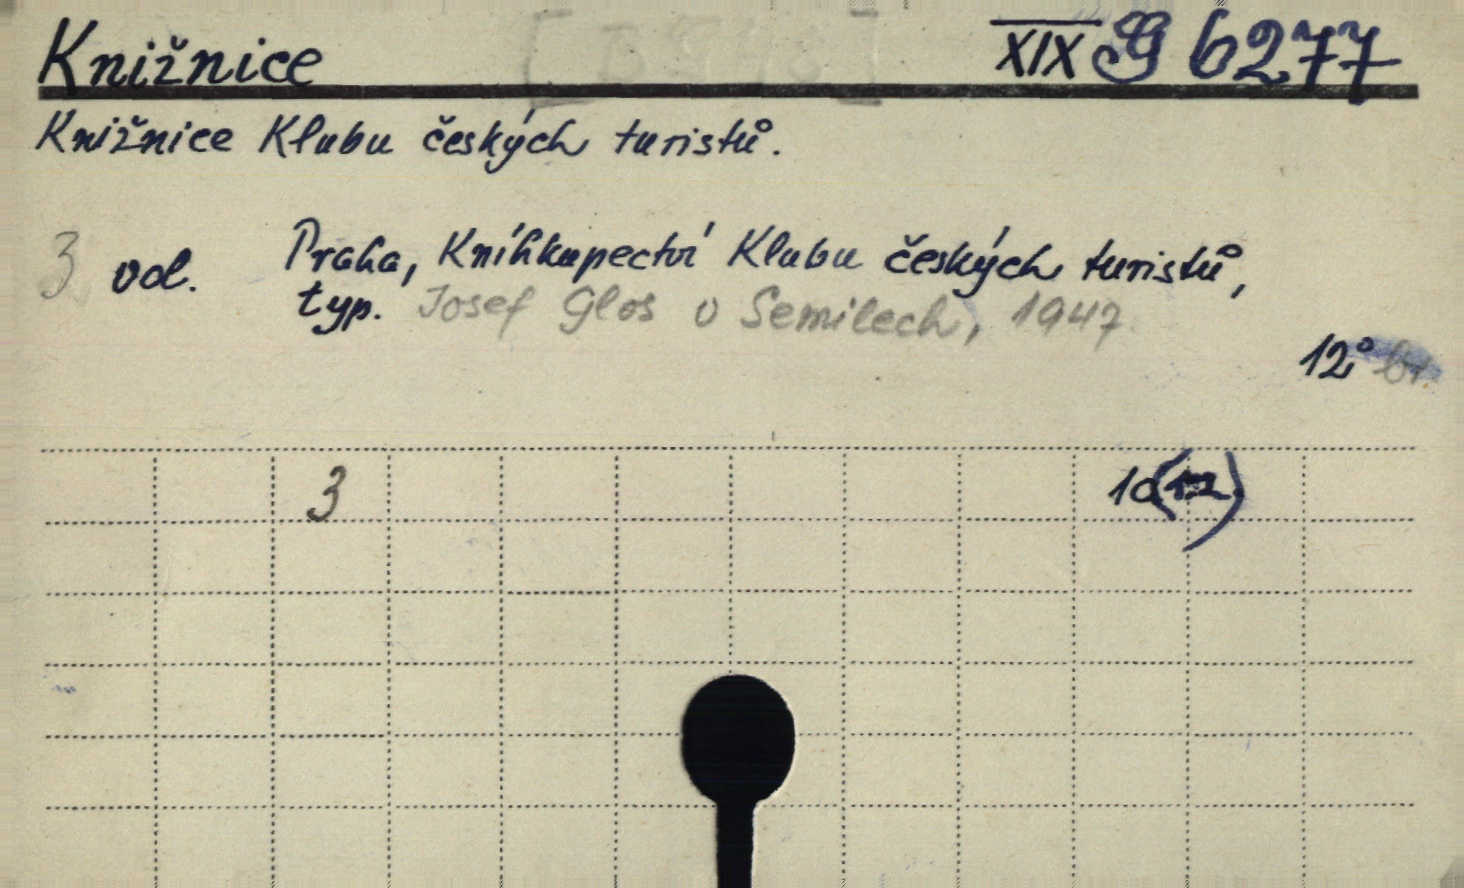 Knižnice XIX G 6277
Knižnice Klubu českých turistů.
3 vol. Praha, Kníhkupectví Klubu českých turistů,
typ. Josef Glos v Semilech, 1947
12° br.
3 10(12)